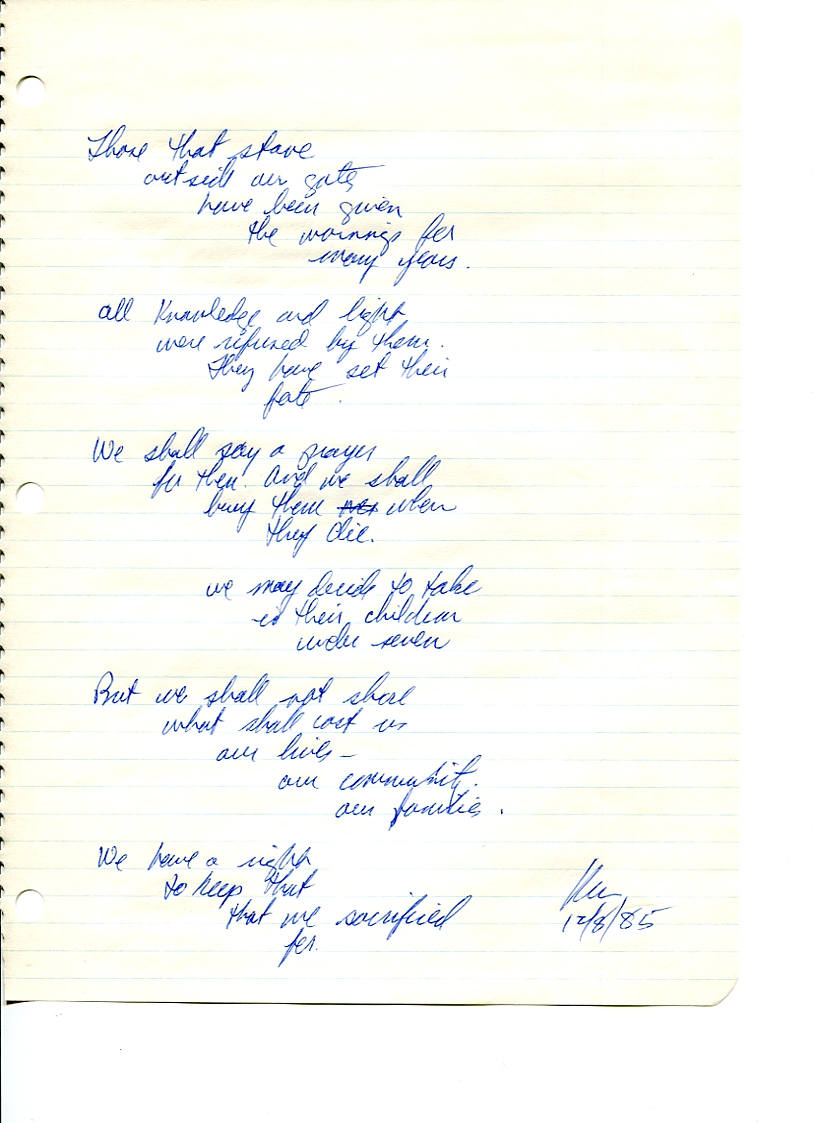 Those that stave
outside our gate
have been given
the warnings for
many years.
all Knowledge and light
were refused by them.
They have set their
fate.
We shall say a prayer
for them. And we shall
bury them when
they die.
we may decide to take
in their children
under seven
But we shall not share
what shall cost us
our lives –
our community.
our families.
We have a right
to keep that
that we sacrificed
for.
12/8/85